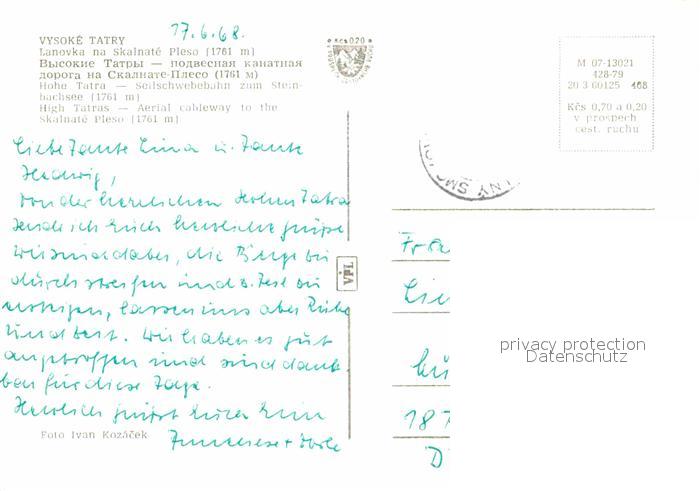 17.6.68.
VYSOKÉ TATRY
Lanovka na Skalnaté Pleso (1761 m)
Высокие Татры — подвесная канатная
дорога на Скалнате-Плесо (1761 м)
Hohe Tatra — Seilschwebebahn zum Stein-
bachsee (1761 m)
High Tatras — Aerial cableway to the
Skalnaté Pleso (1761 m)
M 07-13021
428-79
20 3 60125 468
Kčs 0,70 a 0,20
v prospech
cest. ruchu
Liebe Tante Lina u. Tante
Hedwig,
von der herrlichen Hohen Tatra
sende ich Euch herzliche Grüße
wir sind dabei, die Berge zu
durchstreifen und z. Teil zu
lassen uns aber Ruhe
und Zeit. Wir haben es gut
angetroffen und sind dank-
bar für diese Tage.
Herzlich grüßt Euch
VPL
Foto Ivan Kozáček
Fra
187
D
privacy protection
Datenschutz